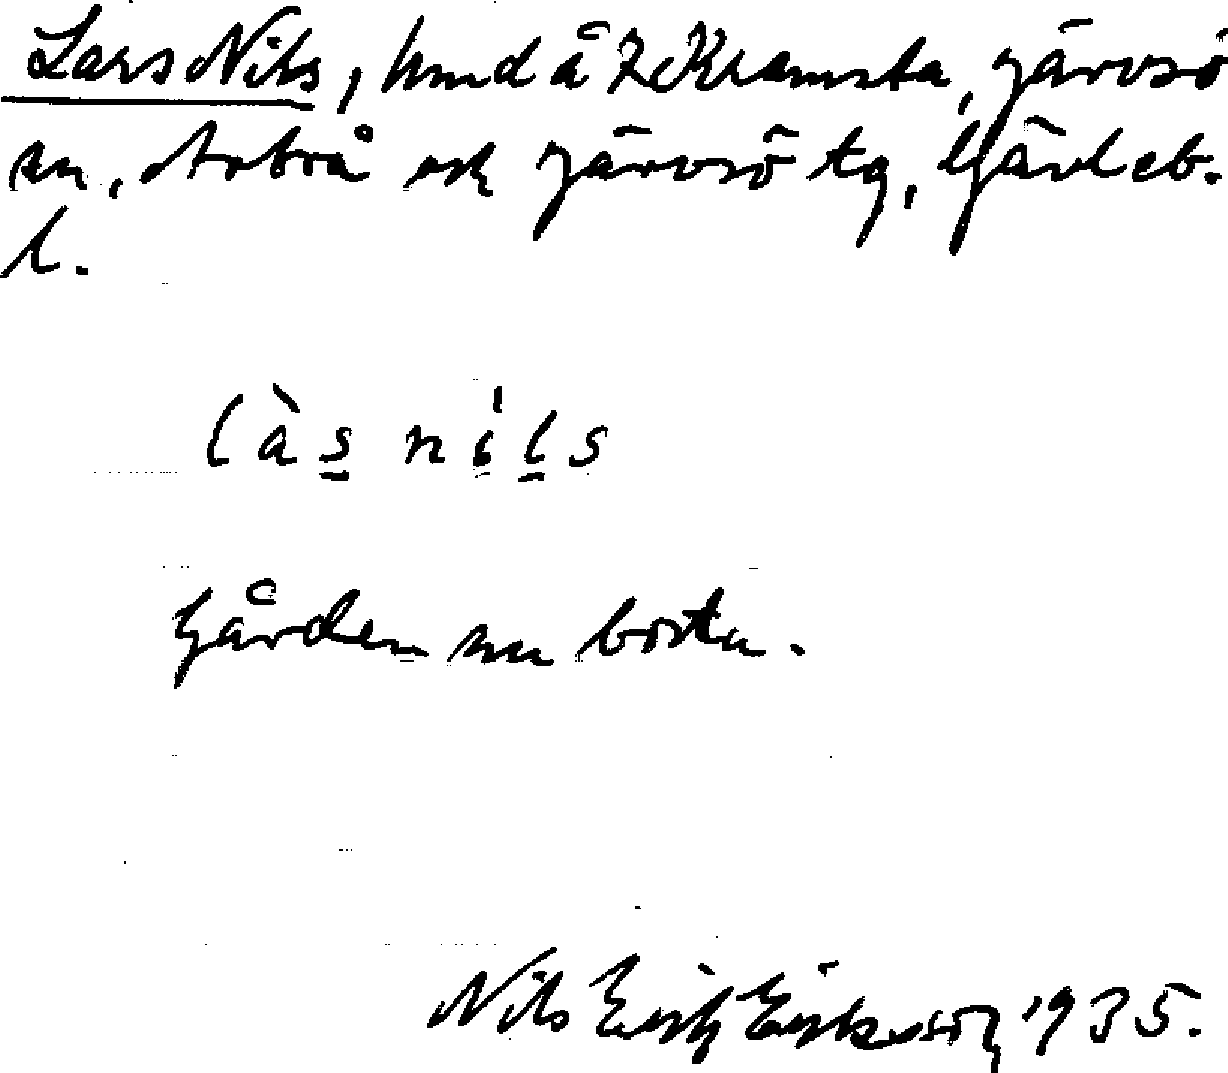 Lars Nils, hmd å 2 Kramsta, Järvsö
sn, Arbrå och Järvsö tg, Gävleb.
l.
làs níls
Gården nu borta.
Nils Erik Eriksson 1935.